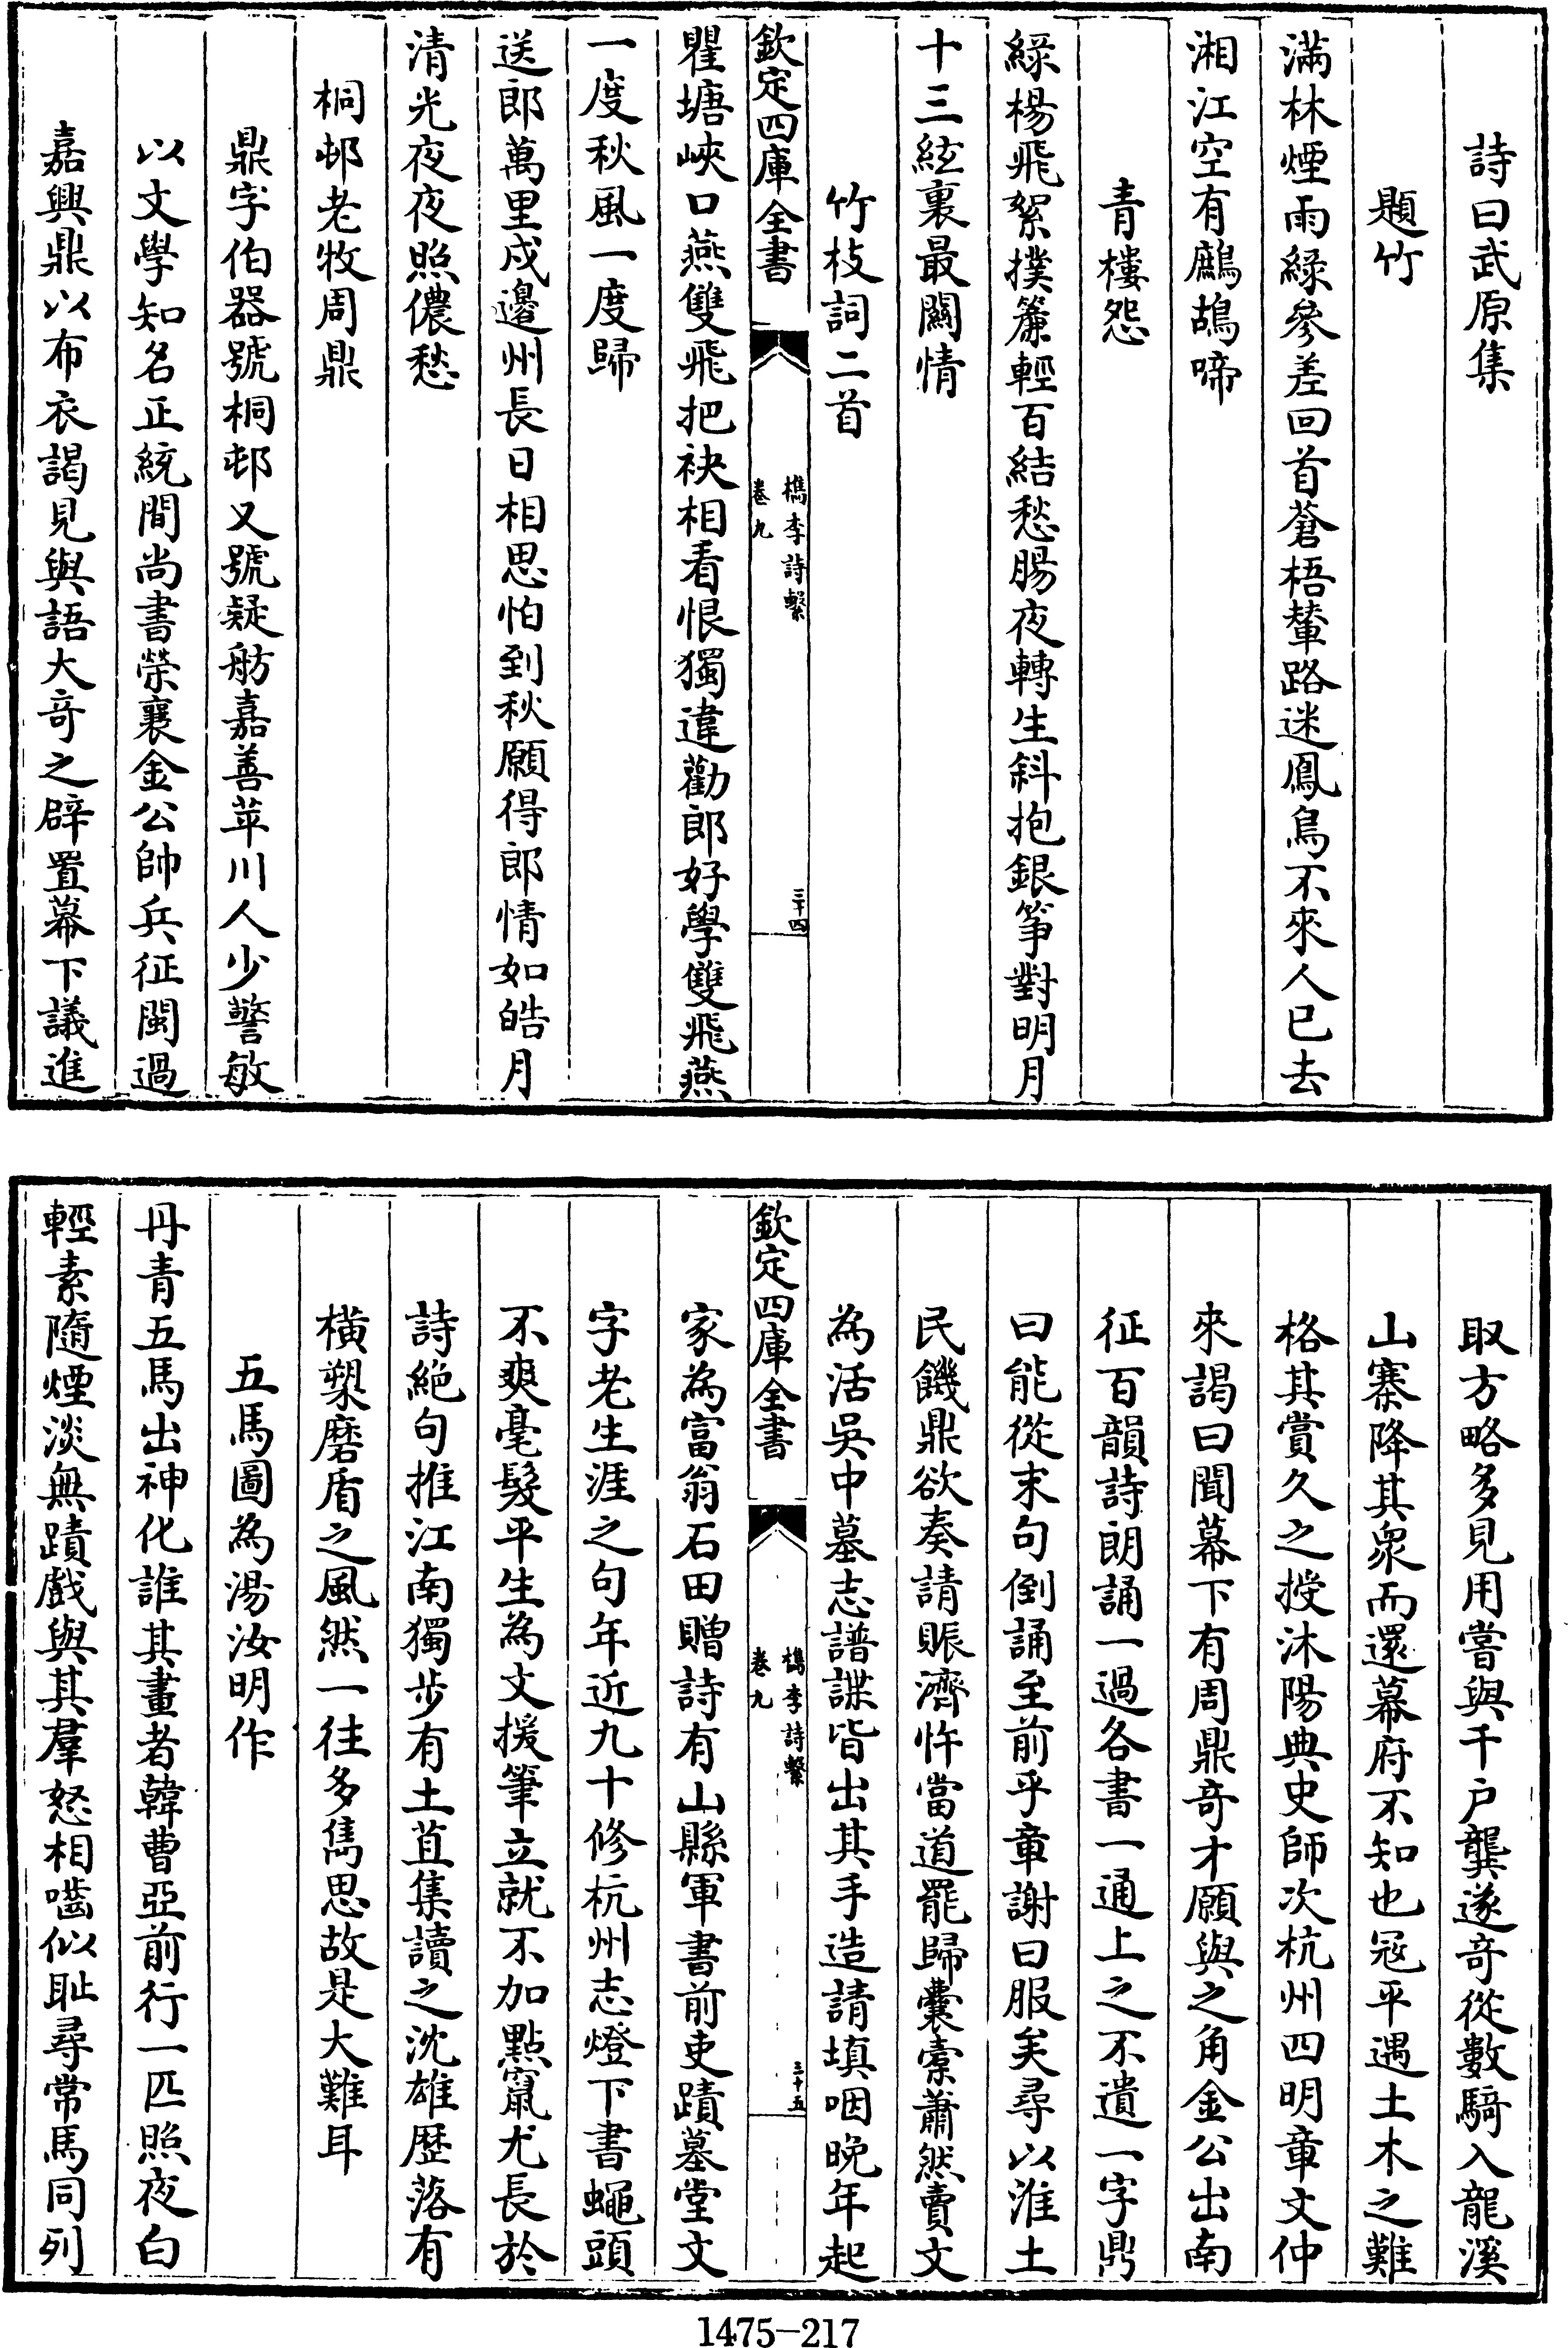 詩曰武原集
題竹
滿林煙雨緑參差回首蒼梧輦路迷鳳鳥不來人已去
湘江空有鷓鴣啼
青樓怨
綠楊飛絮撲簾輕百結愁腸夜轉生斜抱銀筝對明月
十三絃裏最關情
竹枝詞二首
欽定四庫全書
檇李詩繫
卷九
三十四
瞿塘峽口燕雙飛把袂相看恨獨違勸郎好學雙飛燕
一度秋風一度歸
送郎萬里戍邊州長日相思怕到秋願得郎情如皓月
清光夜夜照儂愁
桐邨老牧周鼎
鼎字伯器號桐邨又號疑舫嘉善苹川人少警敏
以文學知名正統間尚書榮襄金公帥兵征閩過
嘉興鼎以布衣謁見與語大奇之辟置幕下議進
取方略多見用嘗與千户龔遂奇從數騎入龍溪
山寨降其衆而還幕府不知也冦平遇土木之難
格其賞久之授沐陽典史師次杭州四明章文仲
來謁曰聞幕下有周鼎奇才願與之角金公出南
征百韻詩朗誦一過各書一通上之不遺一字鼎
曰能從末句倒誦至前乎章謝曰服矣尋以淮土
民饑鼎欲奏請賑濟忤當道罷歸囊橐蕭然賣文
為活吳中墓志譜諜皆出其手造請填咽晚年起
欽定四庫全書
檇李詩繫
卷九
三十五
家為富翁石田贈詩有山縣軍書前吏蹟墓堂文
字老生涯之句年近九十修杭州志燈下書蠅頭
不爽毫髮平生為文援筆立就不加點竄尤長於
詩絕句推江南獨步有土苴集讀之沈雄歴落有
橫槊磨盾之風然一往多雋思故是大難耳
五馬圖為湯汝明作
丹青五馬出神化誰其畫者韓曹亞前行一匹照夜白
輕素隨煙淡無蹟戲與其羣怒相嚙似恥尋常馬同列
1475-217